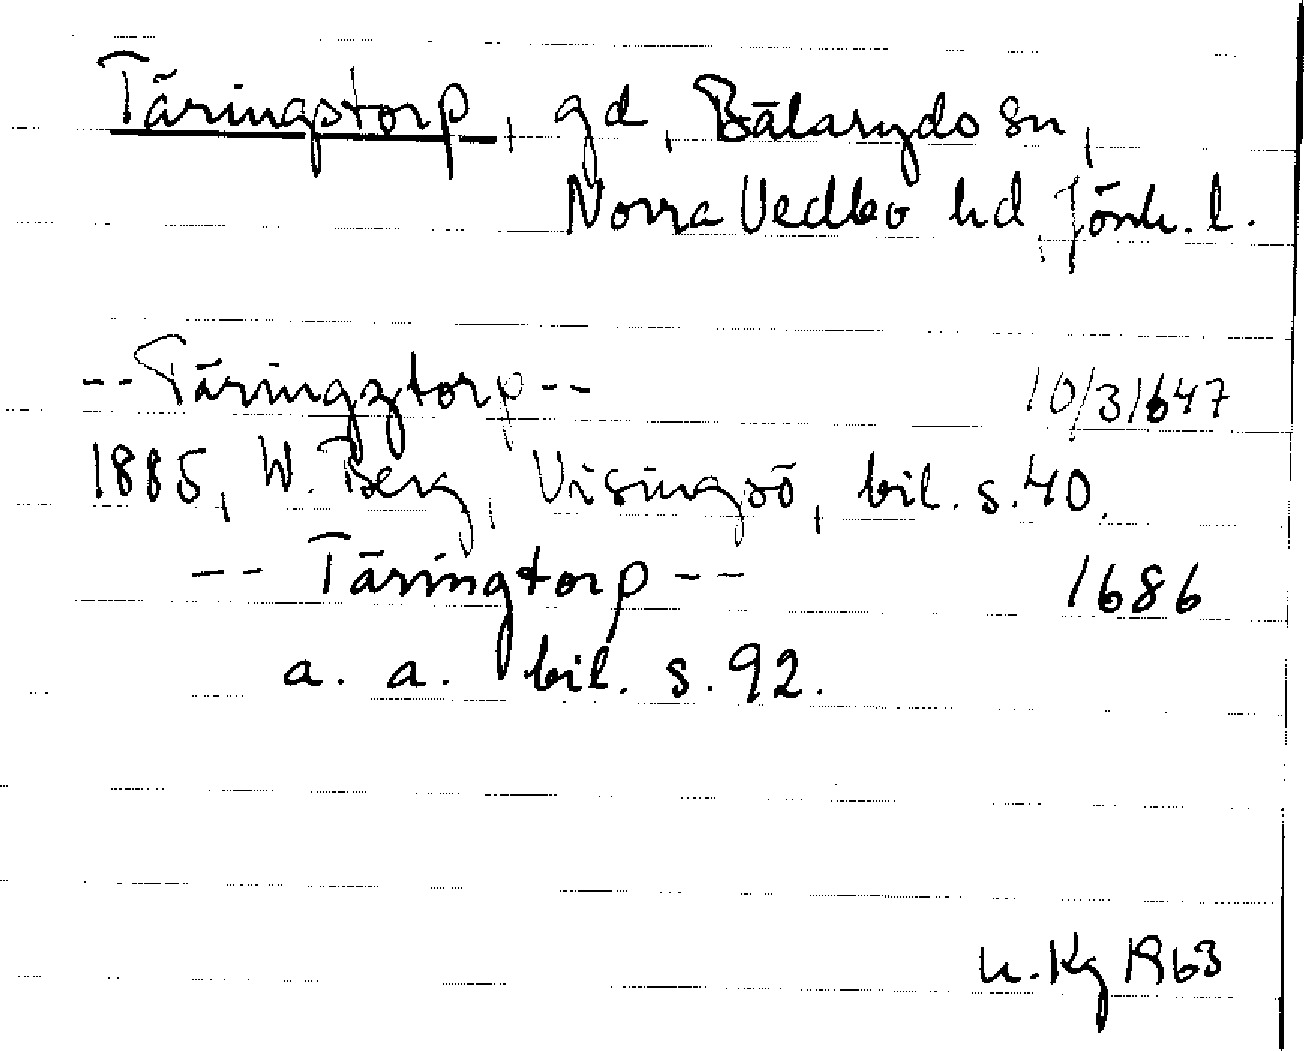 Täringstorp, gd, Bälaryds sn,
Norra Vedbo hd, Jönk. l.
-- Täringztorp -- 10/3 1647
1885, W. Berg, Visingsö, bil. s. 40.
-- Täringtorp -- 1686
a. a. bil. s. 92.
1963